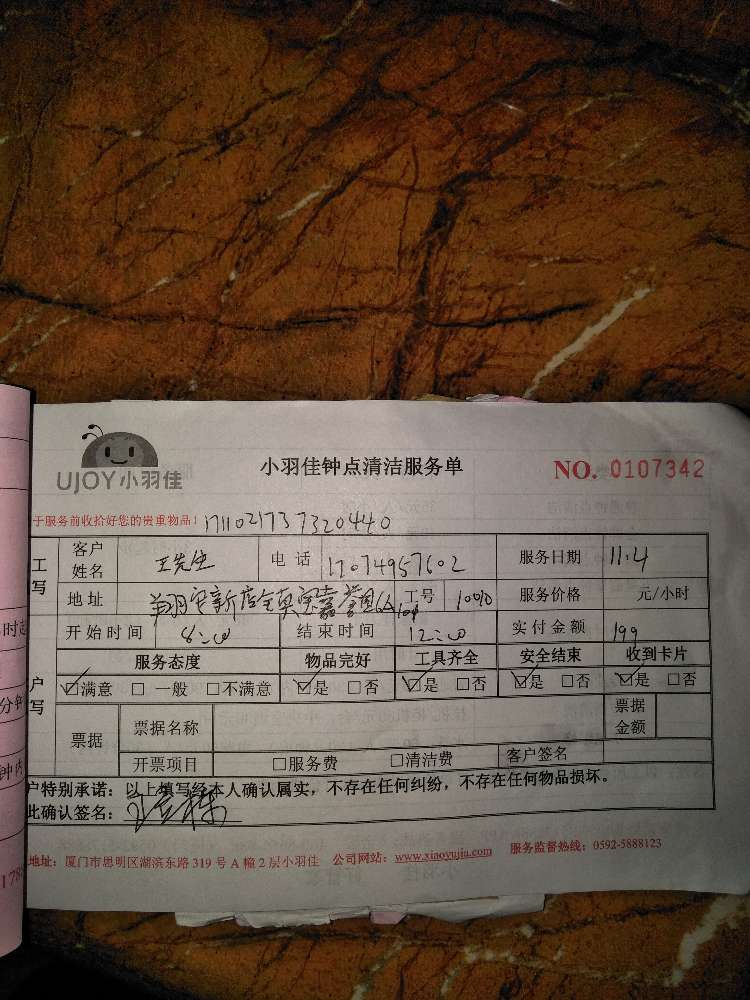 UJOY小羽佳
小羽佳钟点清洁服务单
NO. 0107342
于服务前收拾好您的贵重物品!
1711021737320440
工
写
客户
姓名
王先生
电 话
17074957602
服务日期
11.4
地址
工号
10010
服务价格
元/小时
开始时间
8:00
结束时间
12:00
实付金额
199
户
写
服务态度
物品完好
工具齐全
安全结束
收到卡片
☑满意 □ 一般 □不满意
☑是 □否
☑是 □否
☑是 □否
☑是 □否
票据
票据名称
票据
金额
开票项目
□服务费
□清洁费
客户签名
户特别承诺:以上填写经本人确认属实,不存在任何纠纷,不存在任何物品损坏。
此确认签名:
地址:厦门市思明区湖滨东路 319 号 A 幢 2 层小羽佳 公司网站:www.xiaoyujia.com 服务监督热线:0592-5888123
时起
分钟
钟内